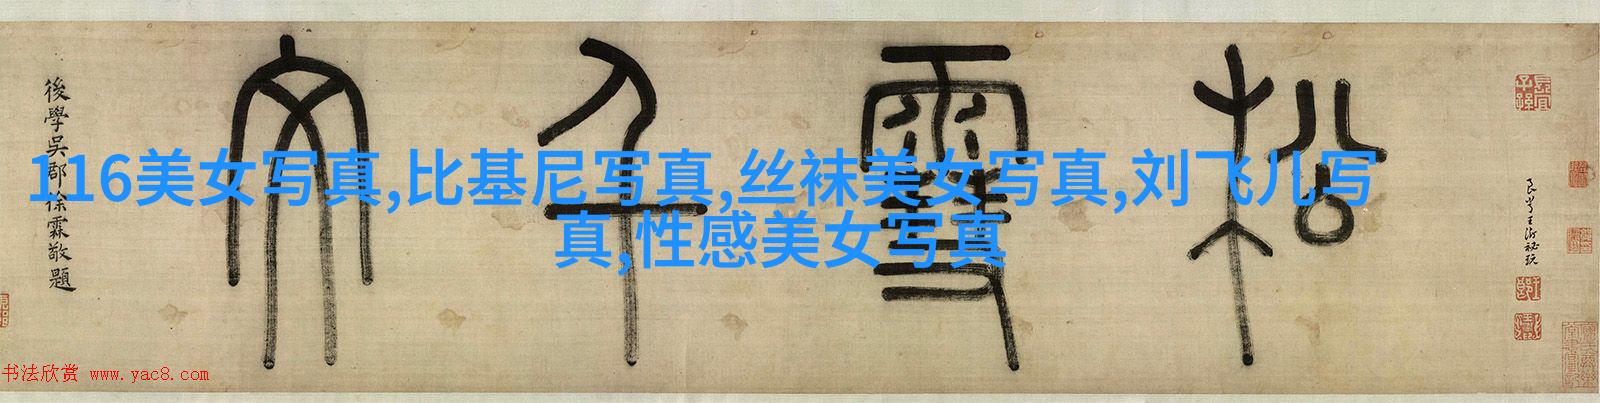 松雪千文
後學吳郡徐霖敬題
116美女写真,比基尼写真,丝袜美女写真,刘飞儿写
真,性感美女写真
书法欣赏 www.yac8.com